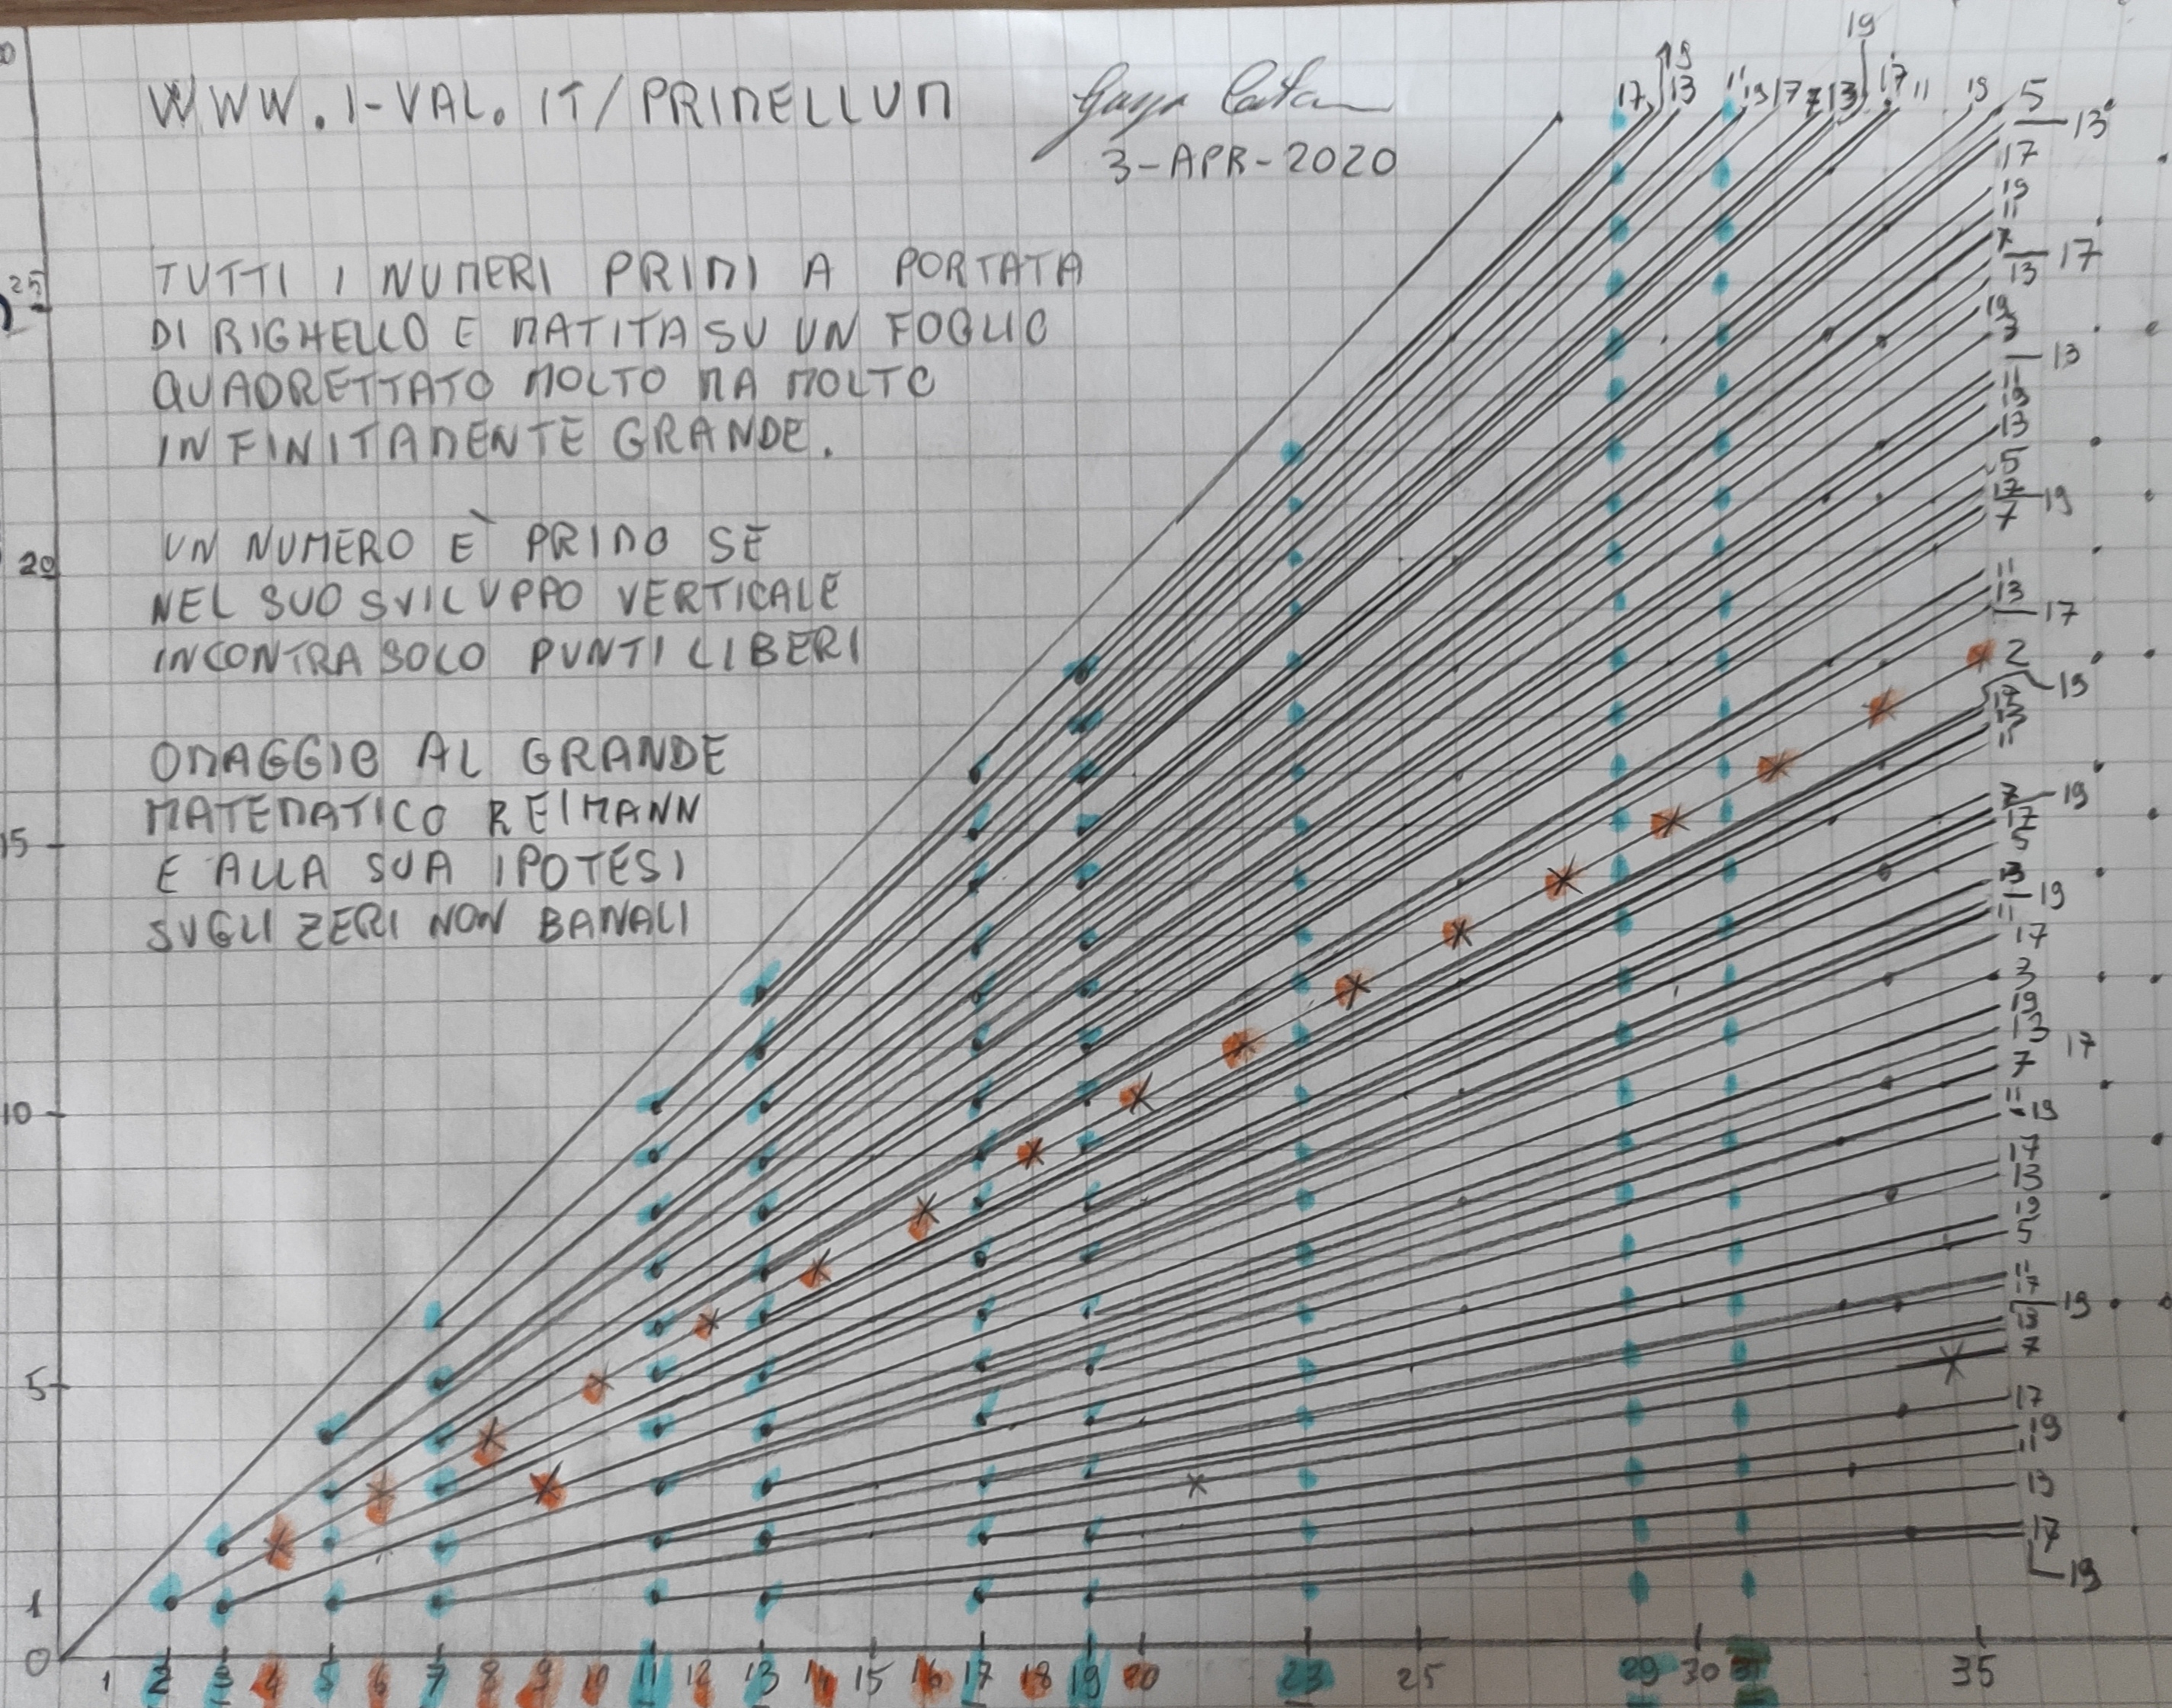 WWW.1-VAL.IT/PRIMELLUM
3-APR-2020
TUTTI I NUMERI PRIMI A PORTATA
DI RIGHELLO E MATITA SU UN FOGLIO
QUADRETTATO MOLTO MA MOLTO
INFINITAMENTE GRANDE.
UN NUMERO È PRIMO SE
NEL SUO SVILUPPO VERTICALE
INCONTRA SOLO PUNTI LIBERI
OMAGGIO AL GRANDE
MATEMATICO REIMANN
E ALLA SUA IPOTESI
SUGLI ZERI NON BANALI
25
20
15
10
5
1
0
19
19
17 13 11 19 17 7 13 17 11 19 5
13
17
19
11
7
17
13
19
3
13
11
19
13
5
17 19
7
11
13
17
2
19
17
13
11
7 19
17
5
13
19
11
17
3
19
13
17
7
11
19
17
13
19
5
11
17
19
13
7
17
19
11
13
17
19
1 2 3 4 5 6 7 8 9 10 11 12 13 14 15 16 17 18 19 20 23 25 29 30 31 35